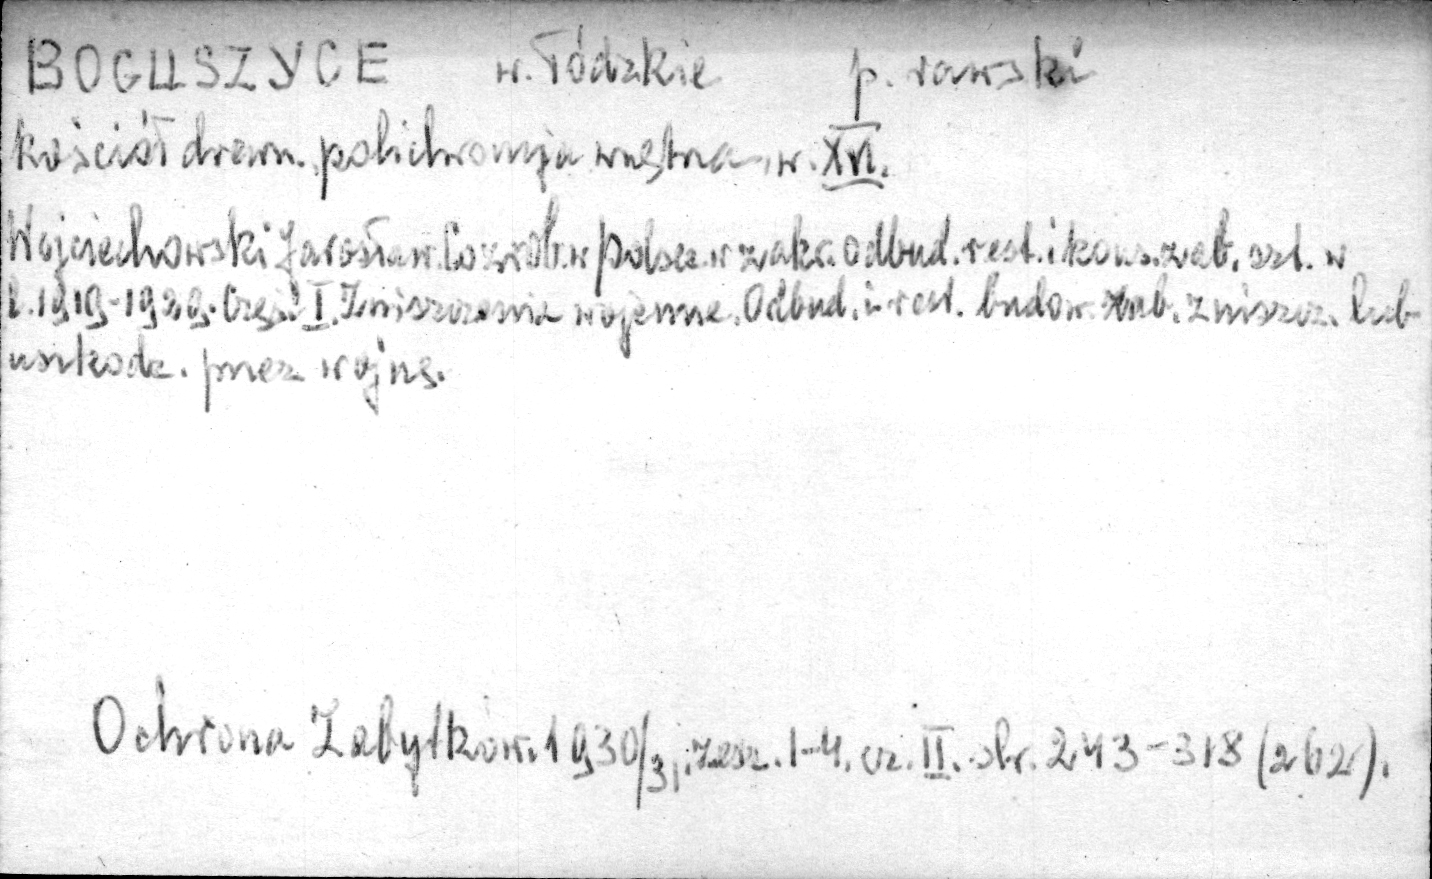 BOGUSZYCE w. łódzkie p. rawski
kościół drewn. polichromja wnętrza w. XVI.
Wojciechowski Jarosław. Co zrob. w Polsce w zakr. odbud. rest. i kons. zab. szt. w
l. 1919-1929. Część I. Zniszczenia wojenne. Odbud. i rest. budow. zab. zniszcz. lub
uszkodz. przez wojnę.
Ochrona Zabytków. 1930/31, zesz. 1-4. cz. II. str. 243-318 (262).